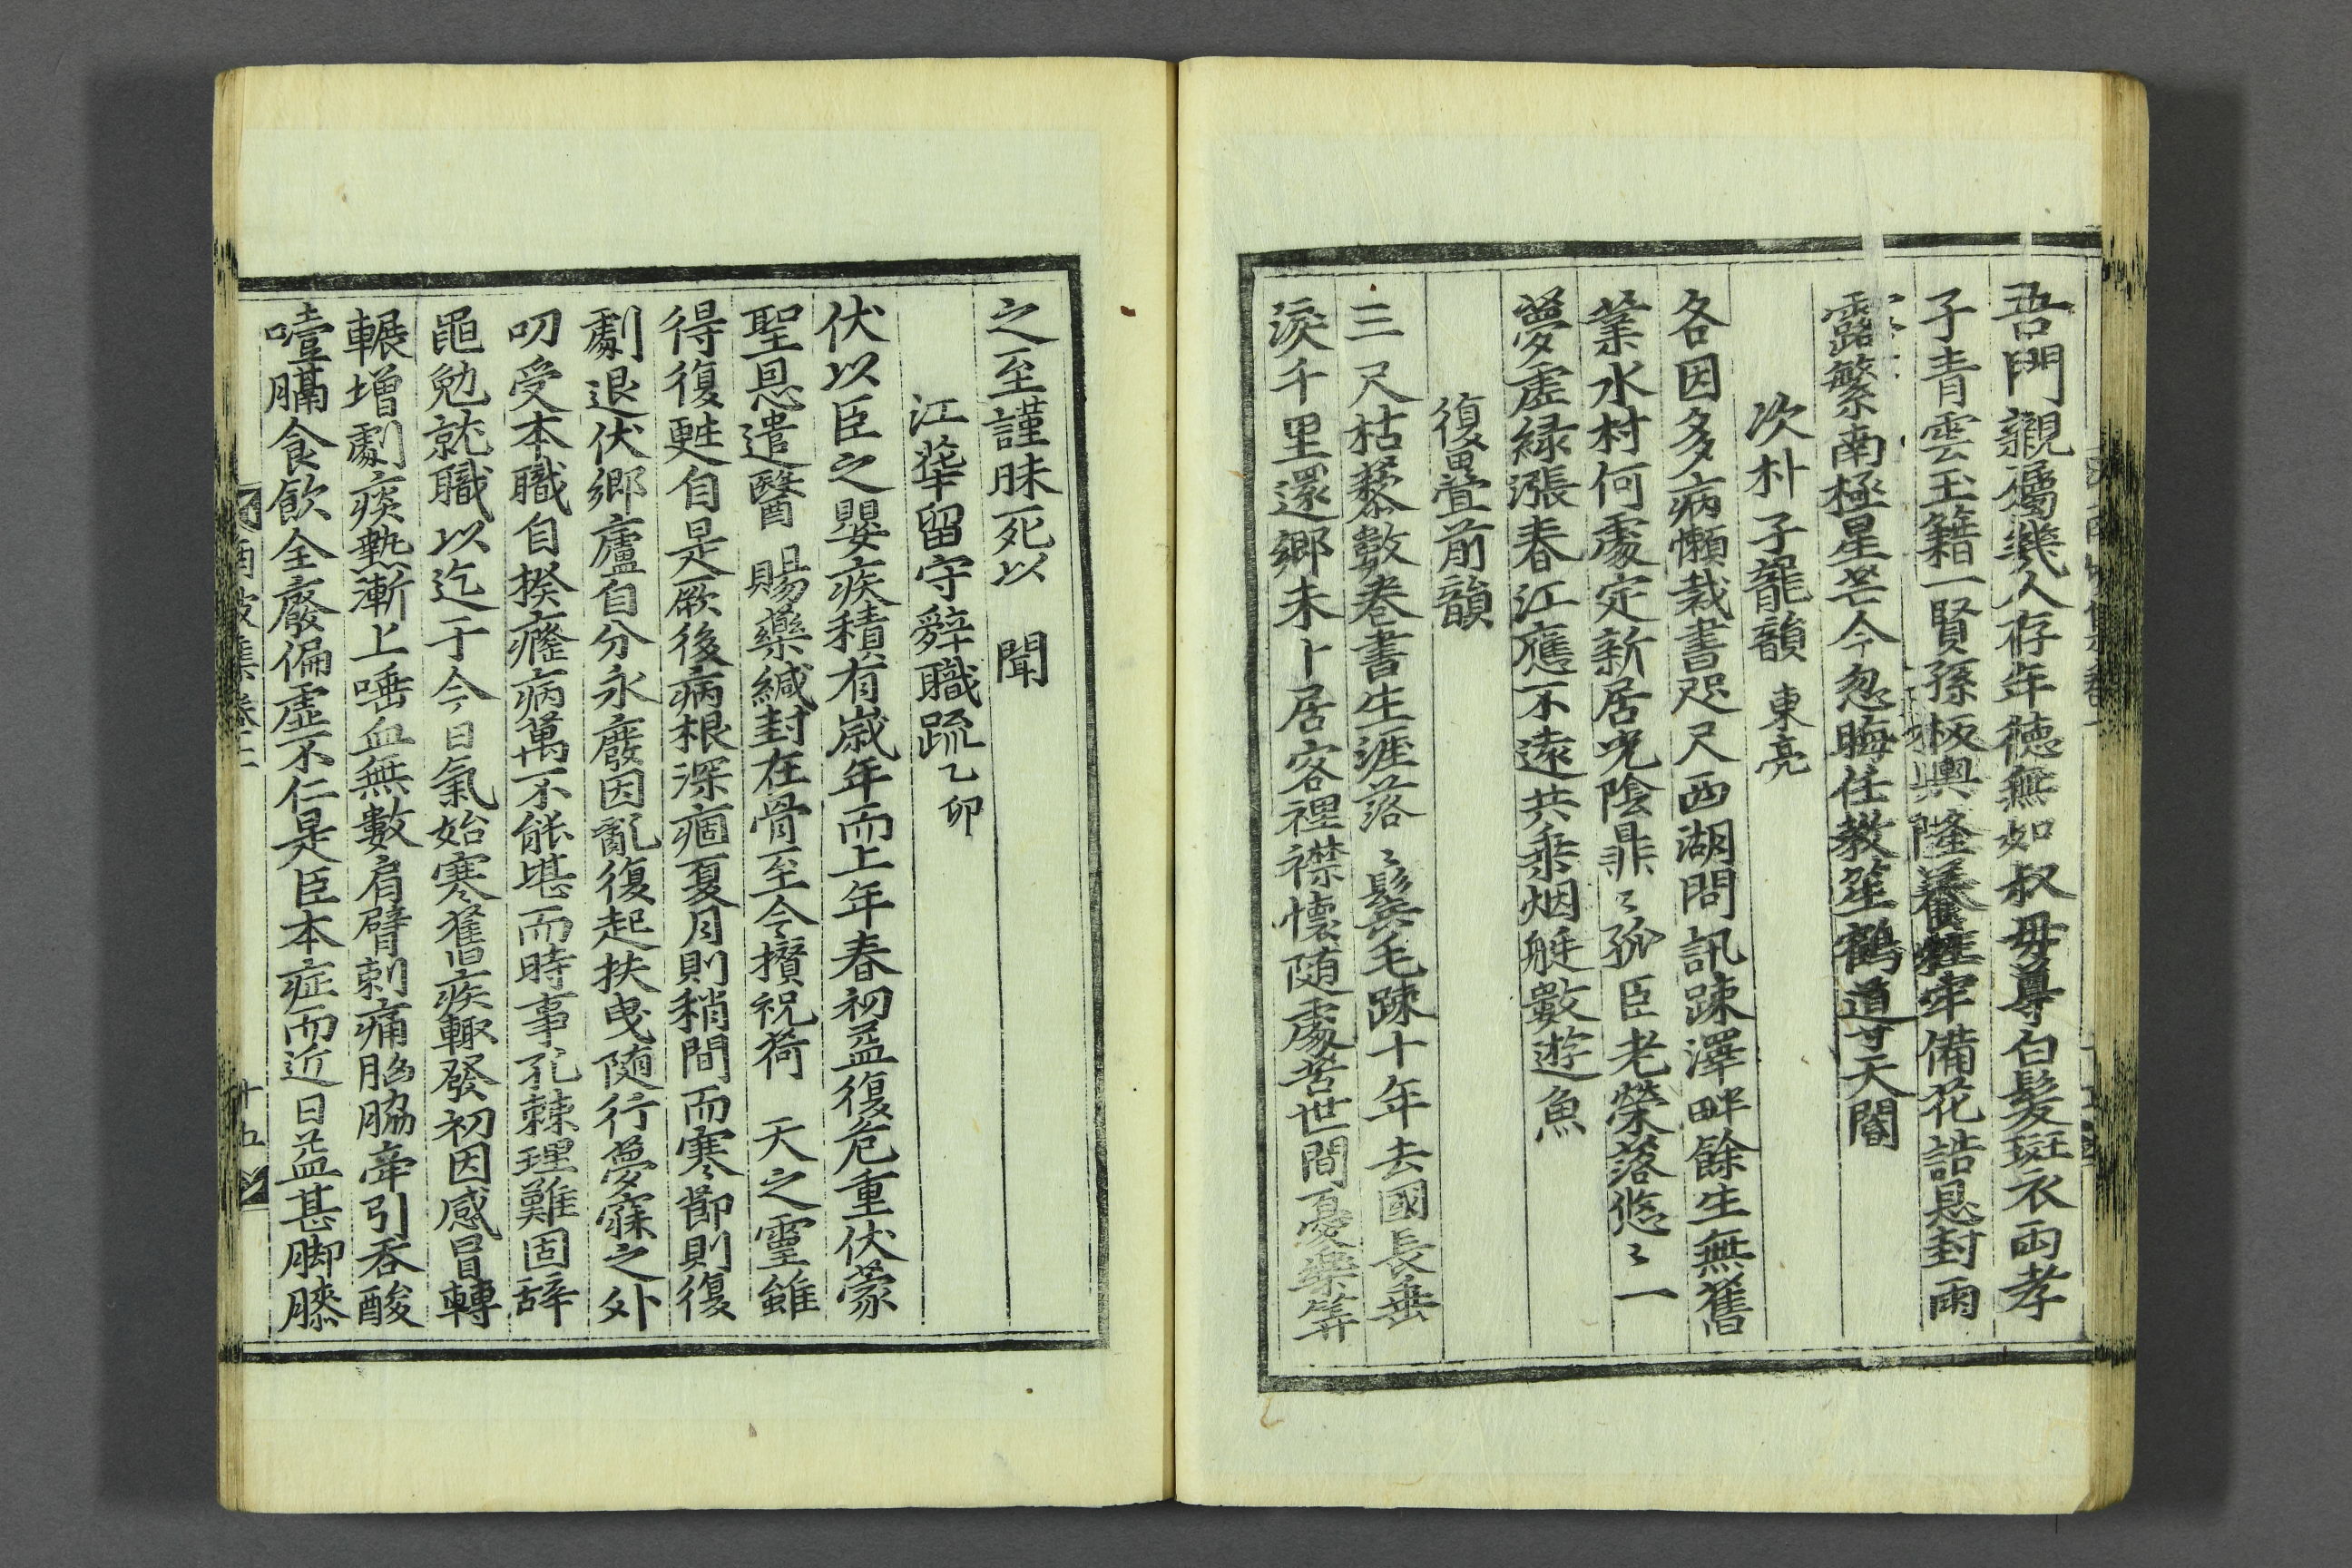 吾門親屬幾人存年德無如叔母尊白髮斑衣兩孝
子青雲玉籍一賢孫板輿隆養牲牢備花誥恩封雨
露繁南極星芒今忽晦任教笙鶴道天閽
次朴子龍韻 東亮
各因多病懶裁書咫尺西湖問訊疎澤畔餘生無舊
業水村何處定新居光陰鼎〻孤臣老榮落悠〻一
夢虛綠漲春江應不遠共乘烟艇數遊魚
復疊前韻
三尺枯藜數卷書生涯落〻鬂毛疎十年去國長垂
淚千里還鄉未卜居客裡襟懷随處苦世間憂樂筭
之至謹昧死以 聞
江華留守辭職疏乙卯
伏以臣之嬰疾積有歲年而上年春初益復危重伏蒙
聖恩遣醫 賜藥緘封在骨至今攅祝荷 天之靈雖
得復甦自是厥後病根深痼夏月則稍間而寒節則復
劇退伏鄉廬自分永廢因亂復起扶曳随行夢寐之外
叨受本職自揆癃病萬不能堪而時事孔棘理難固辭
黽勉就職以迄于今日氣始寒舊疾輒發初因感冒轉
輾增劇痰熱漸上唾血無數肩臂刺痛胸脇牽引呑酸
噎膈食飲全廢偏虛不仁是臣本症而近日益甚脚膝
十五